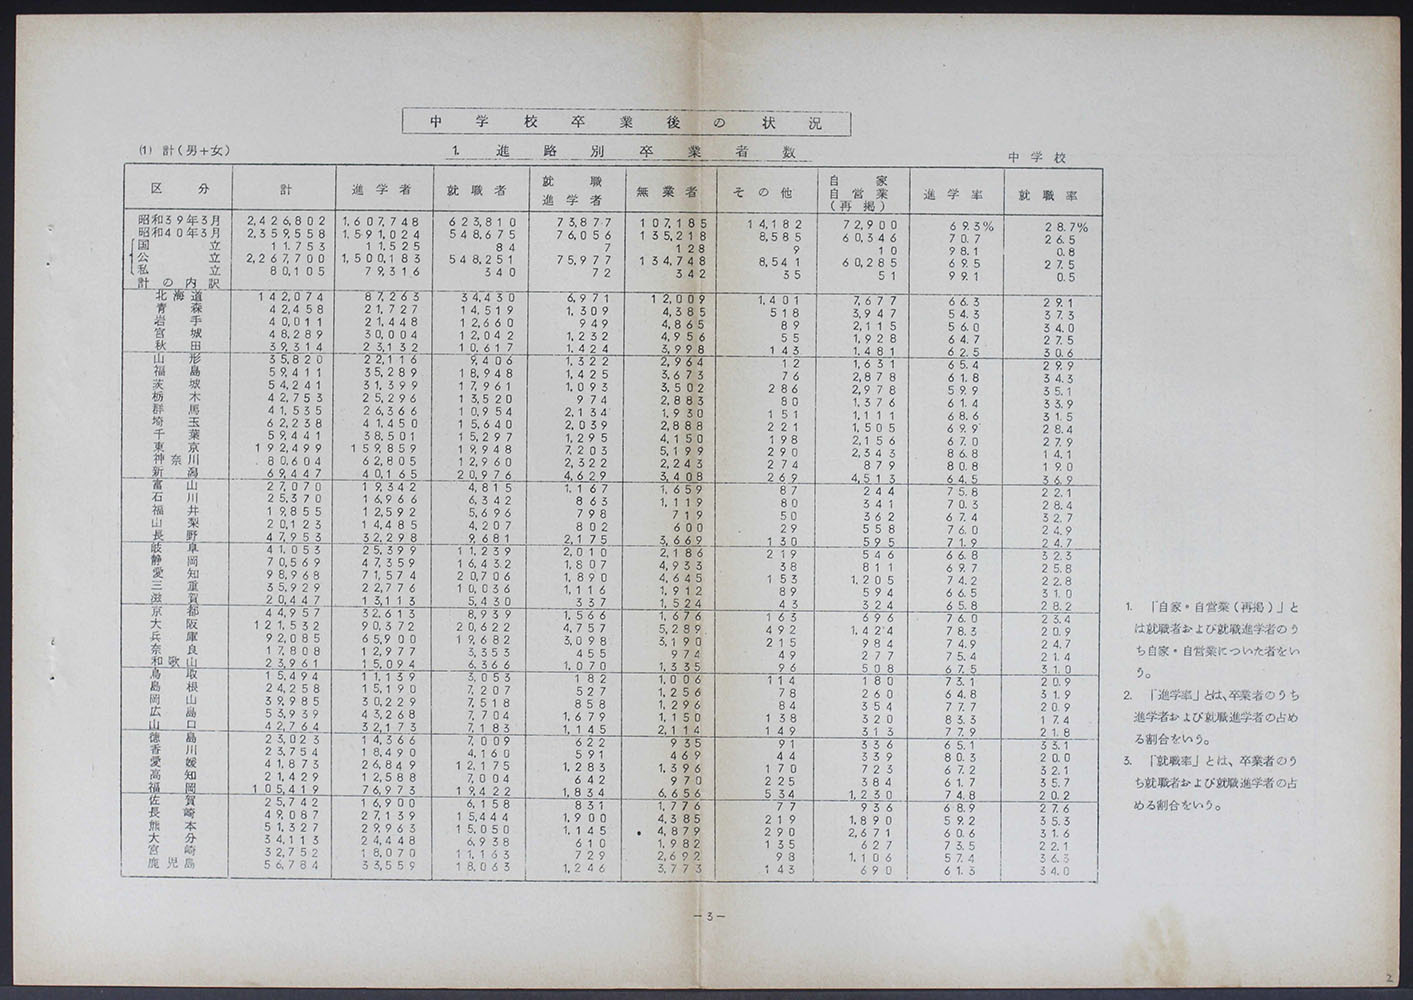 中学校卒業後の状況
(1) 計(男+女)
1. 進路別卒業者数
中学校
区分 計 進学者 就職者 就職進学者 無業者 その他 自家自営業(再掲) 進学率 就職率
昭和39年3月 2,426,802 1,607,748 623,810 73,877 107,185 14,182 72,900 69.3% 28.7%
昭和40年3月 2,359,558 1,591,024 548,675 76,056 135,218 8,585 60,346 70.7 26.5
国立 11,753 11,525 84 7 128 9 10 98.1 0.8
公立 2,267,700 1,500,183 548,251 75,977 134,748 8,541 60,285 69.5 27.5
私立 80,105 79,316 340 72 342 35 51 99.1 0.5
計の内訳
北海道 142,074 87,263 34,430 6,971 12,009 1,401 7,677 66.3 29.1
青森 42,458 21,727 14,519 1,309 4,385 518 3,947 54.3 37.3
岩手 40,011 21,448 12,660 949 4,865 89 2,115 56.0 34.0
宮城 48,289 30,004 12,042 1,232 4,956 55 1,928 64.7 27.5
秋田 39,314 23,132 10,617 1,424 3,998 143 1,481 62.5 30.6
山形 35,820 22,116 9,406 1,322 2,964 12 1,631 65.4 29.9
福島 59,411 35,289 18,948 1,425 3,673 76 2,878 61.8 34.3
茨城 54,241 31,399 17,961 1,093 3,502 286 2,978 59.9 35.1
栃木 42,753 25,296 13,520 974 2,883 80 1,376 61.4 33.9
群馬 41,535 26,366 10,954 2,134 1,930 151 1,111 68.6 31.5
埼玉 62,238 41,450 15,640 2,039 2,888 221 1,505 69.9 28.4
千葉 59,441 38,501 15,297 1,295 4,150 198 2,156 67.0 27.9
東京 192,499 159,859 19,948 7,203 5,199 290 2,343 86.8 14.1
神奈川 80,604 62,805 12,960 2,322 2,243 274 879 80.8 19.0
新潟 69,447 40,165 20,976 4,629 3,408 269 4,513 64.5 36.9
富山 27,070 19,342 4,815 1,167 1,659 87 244 75.8 22.1
石川 25,370 16,966 6,342 863 1,119 80 341 70.3 28.4
福井 19,855 12,592 5,696 798 719 50 362 67.4 32.7
山梨 20,123 14,485 4,207 802 600 29 558 76.0 24.9
長野 47,953 32,298 9,681 2,175 3,669 130 595 71.9 24.7
岐阜 41,053 25,399 11,239 2,010 2,186 219 546 66.8 32.3
静岡 70,569 47,359 16,432 1,807 4,933 38 811 69.7 25.8
愛知 98,968 71,574 20,706 1,890 4,645 153 1,205 74.2 22.8
三重 35,929 22,776 10,036 1,116 1,912 89 594 66.5 31.0
滋賀 20,447 13,113 5,430 337 1,524 43 324 65.8 28.2
京都 44,957 32,613 8,939 1,566 1,676 163 696 76.0 23.4
大阪 121,532 90,372 20,622 4,757 5,289 492 1,424 78.3 20.9
兵庫 92,085 65,900 19,682 3,098 3,190 215 984 74.9 24.7
奈良 17,808 12,977 3,353 455 974 49 277 75.4 21.4
和歌山 23,961 15,094 6,366 1,070 1,335 96 508 67.5 31.0
鳥取 15,494 11,139 3,053 182 1,006 114 180 73.1 20.9
島根 24,258 15,190 7,207 527 1,256 78 260 64.8 31.9
岡山 39,985 30,229 7,518 858 1,296 84 354 77.7 20.9
広島 53,939 43,268 7,704 1,679 1,150 138 320 83.3 17.4
山口 42,764 32,173 7,183 1,145 2,114 149 313 77.9 21.8
徳島 23,023 14,366 7,009 622 935 91 336 65.1 33.1
香川 23,754 18,490 4,160 591 469 44 339 80.3 20.0
愛媛 41,873 26,849 12,175 1,283 1,396 170 723 67.2 32.1
高知 21,429 12,588 7,004 642 970 225 384 61.7 35.7
福岡 105,419 76,973 19,422 1,834 6,656 534 1,230 74.8 20.2
佐賀 25,742 16,900 6,158 831 1,776 77 936 68.9 27.6
長崎 49,087 27,139 15,444 1,900 4,385 219 1,890 59.2 35.3
熊本 51,327 29,963 15,050 1,145 4,879 290 2,671 60.6 31.6
大分 34,113 24,448 6,938 610 1,982 135 627 73.5 22.1
宮崎 32,752 18,070 11,163 729 2,692 98 1,106 57.4 36.3
鹿児島 56,784 33,559 18,063 1,246 3,773 143 690 61.3 34.0
1. 「自家・自営業(再掲)」と
は就職者および就職進学者のう
ち自家・自営業についた者をい
う。
2. 「進学率」とは、卒業者のうち
進学者および就職進学者の占め
る割合をいう。
3. 「就職率」とは、卒業者のう
ち就職者および就職進学者の占
める割合をいう。
-3-
2